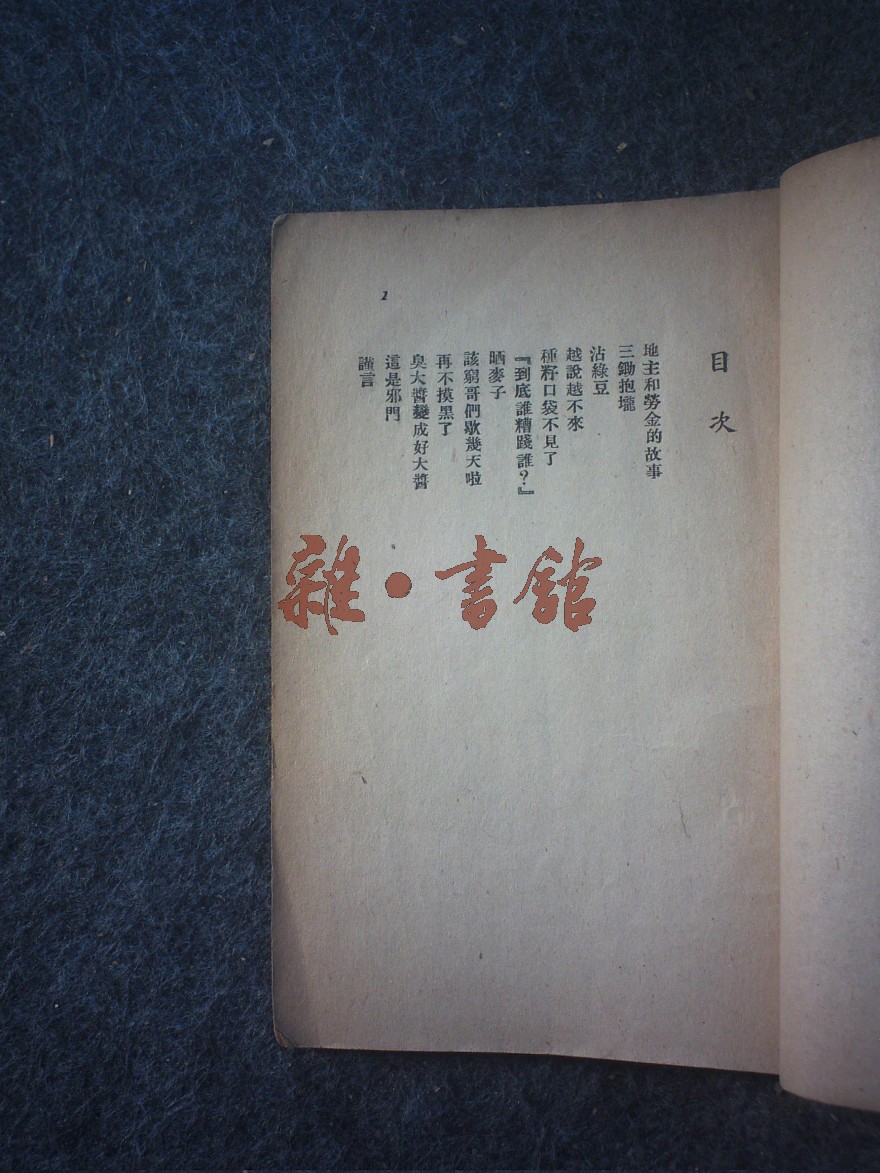 目次
地主和勞金的故事
三鋤抱壠
沾綠豆
越說越不來
種籽口袋不見了
『到底誰糟踐誰？』
晒麥子
該窮哥們歇幾天啦
再不摸黑了
臭大醬變成好大醬
這是邪門
謹言
1
雜·書館